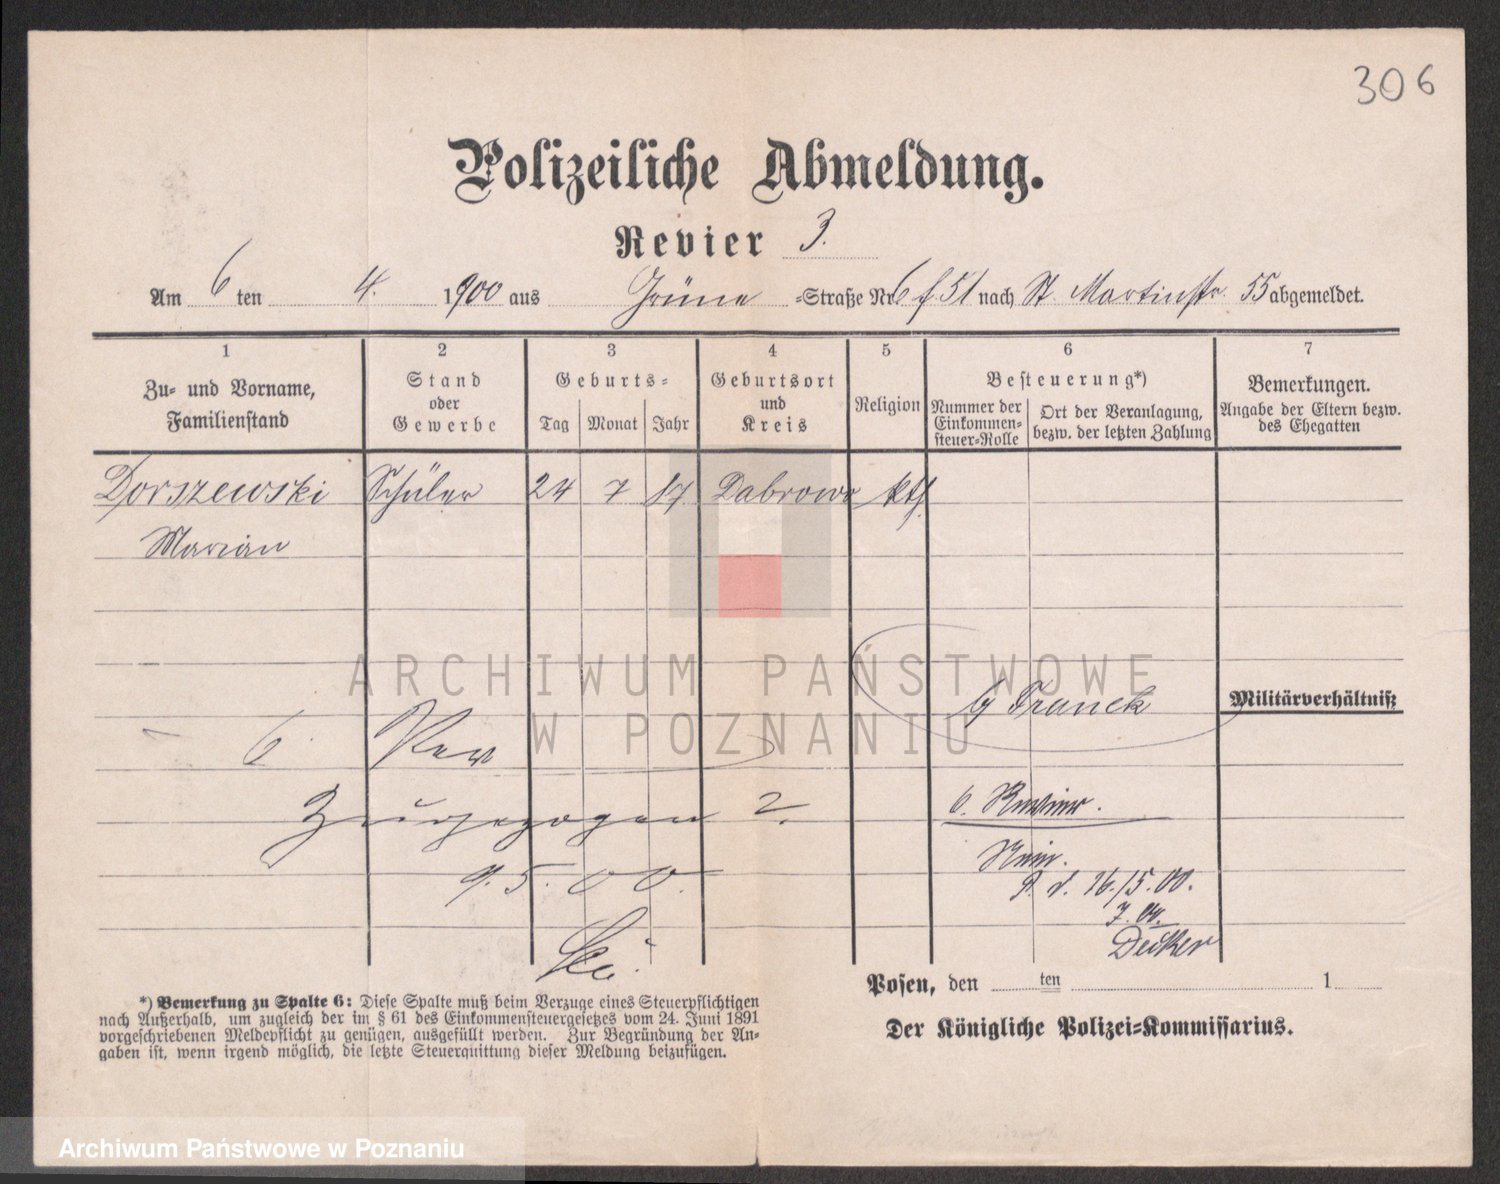 306
Polizeiliche Abmeldung.
Revier 3.
Am 6 ten 4. 1900 aus Grüne -Straße Nr 6 f. 51 nach St. Martinstr. 55 abgemeldet.
1 2 3 4 5 6 7
Zu- und Vorname, Familienstand
Stand oder Gewerbe
Geburts-
Tag Monat Jahr
Geburtsort und Kreis
Religion
Besteuerung*)
Nummer der Einkommen-steuer-Rolle
Ort der Veranlagung, bezw. der letzten Zahlung
Bemerkungen.
Angabe der Eltern bezw. des Ehegatten
Dorszewski Schüler 24 7 87 Dabrowo kth.
Marian
b/ Franck
Militärverhältniß
6. Rev
6. Revier.
2.
9.5.00.
16./5.00.
Decker
Posen, den ten 1
Der Königliche Polizei-Kommissarius.
*) Bemerkung zu Spalte 6: Diese Spalte muß beim Verzuge eines Steuerpflichtigen
nach Außerhalb, um zugleich der im § 61 des Einkommensteuergesetzes vom 24. Juni 1891
vorgeschriebenen Meldepflicht zu genügen, ausgefüllt werden. Zur Begründung der An-
gaben ist, wenn irgend möglich, die letzte Steuerquittung dieser Meldung beizufügen.
ARCHIWUM PAŃSTWOWE
W POZNANIU
Archiwum Państwowe w Poznaniu